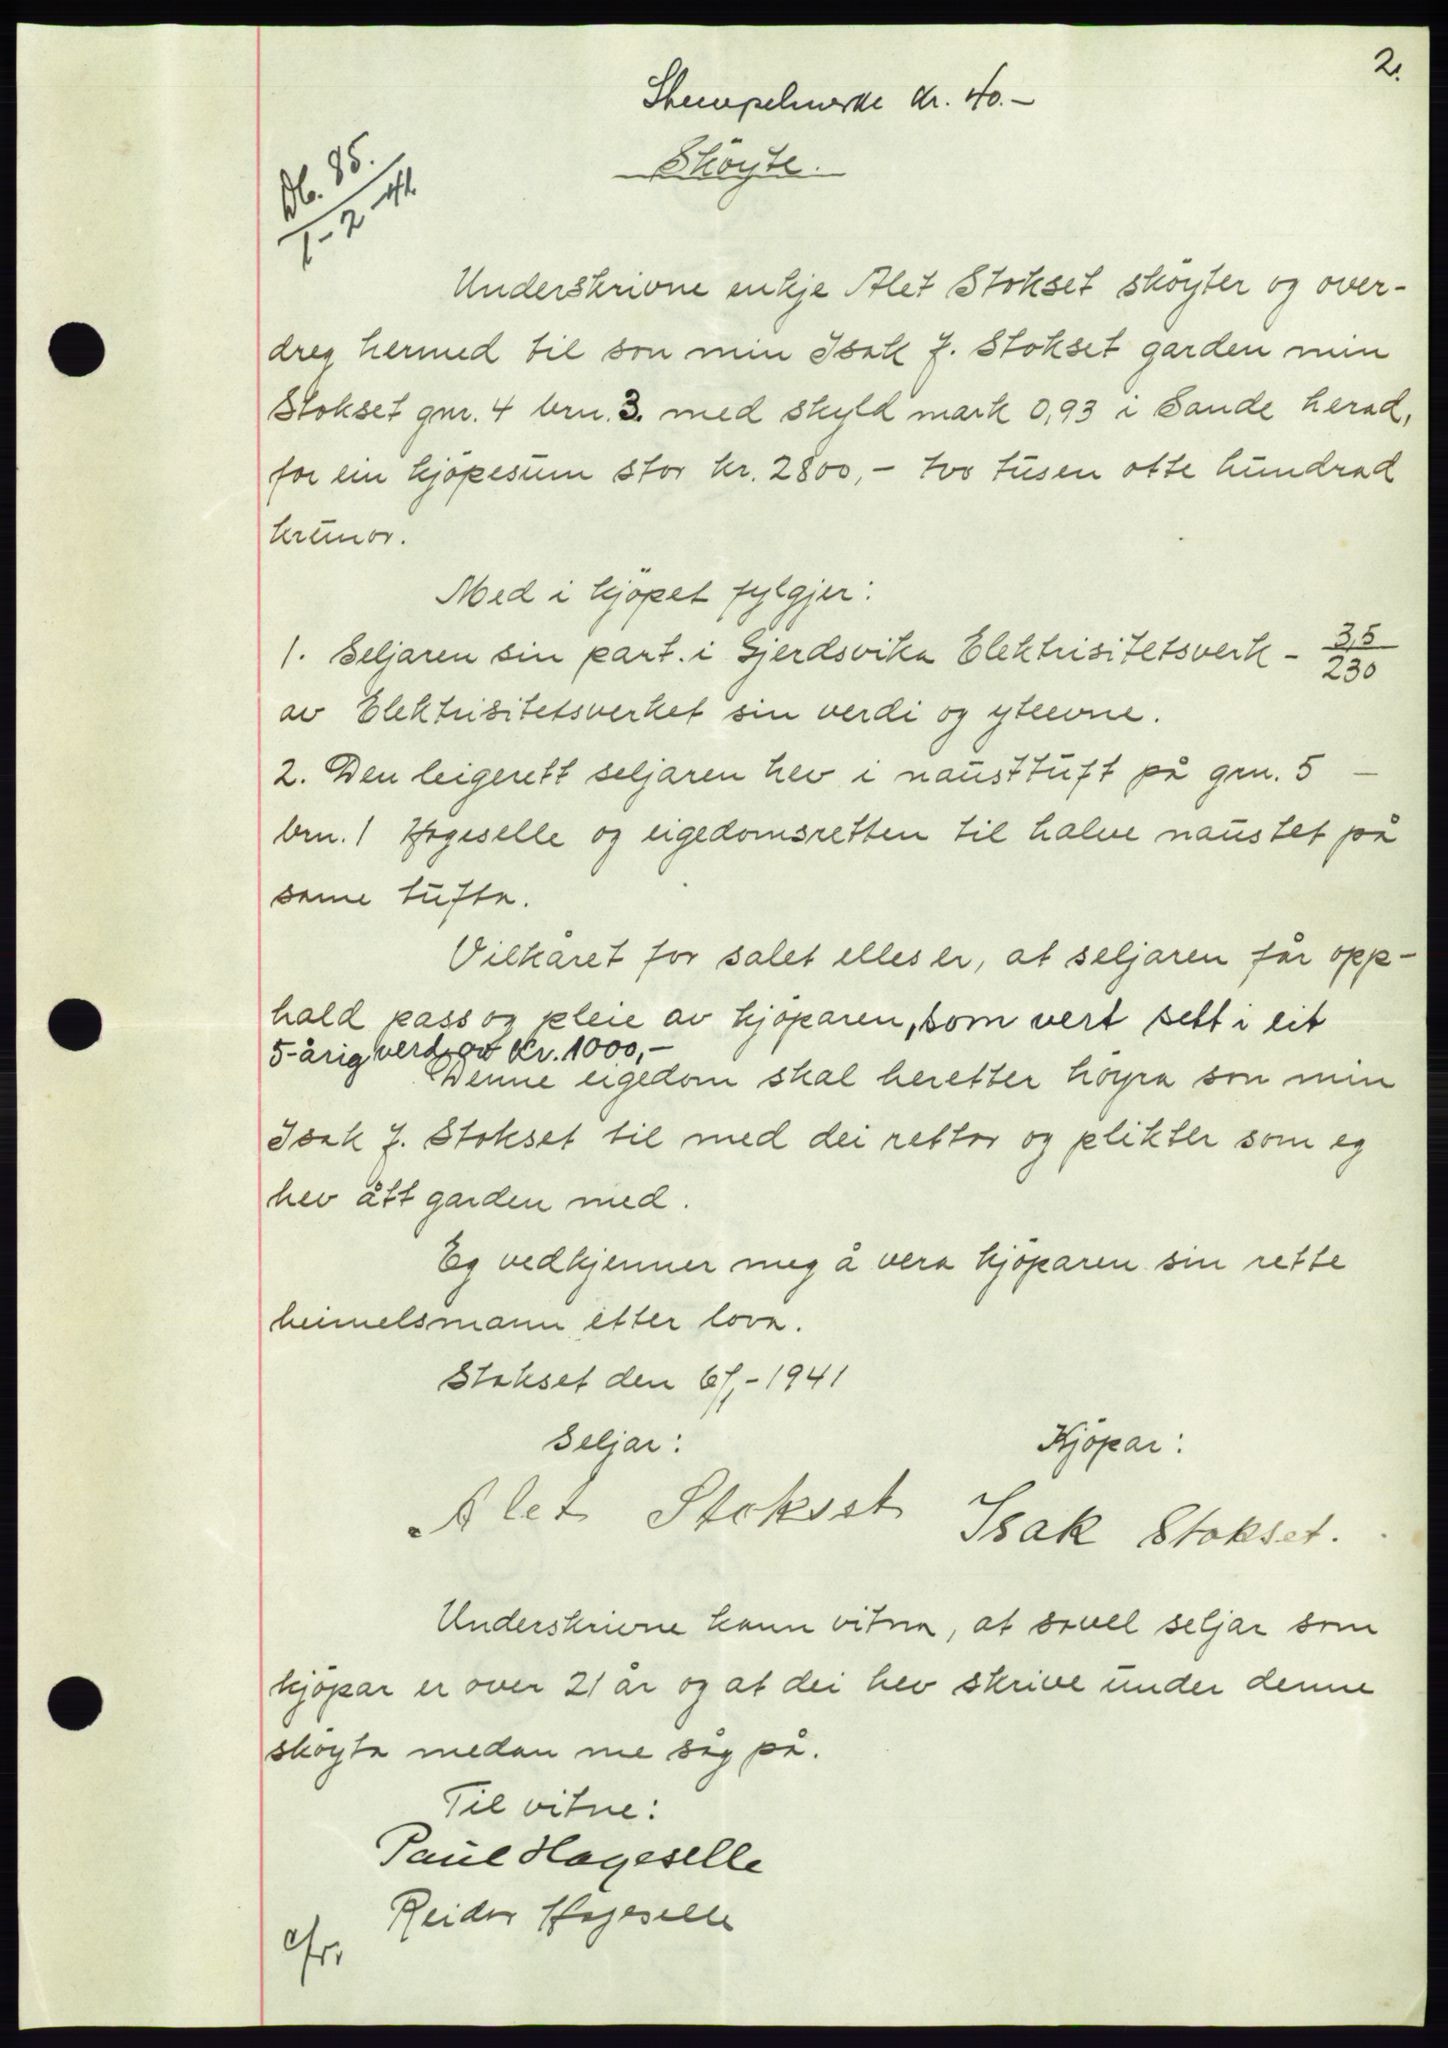 2.
Stempelmerke kr. 40.-
Sköyte.
Db. 85.
1-2-41.
Underskrivne enkje Alet Stokset sköyter og over-
dreg hermed til son min Isak J. Stokset garden min
Stokset gnr. 4 brn. 3. med skyld mark 0,93 i Sande herad,
for ein kjöpesum stor kr. 2800,- tvo tusen otte hundrad
krunor.
Med i kjöpet fylgjer:
1. Seljaren sin part. i Gjerdsvika Elektrisitetsverk - 3,5/230
av Elektrisitetsverket sin verdi og yteevne.
2. Den leigerett seljaren hev i nausttuft på grn. 5 -
brn. 1 Hageselle og eigedomsretten til halve naustet på
same tufta.
Vilkåret for salet elles er, at seljaren får opp-
hald pass og pleie av kjöparen, som vert sett i eit
5-årig verd av kr. 1000,-
Denne eigedom skal heretter höyra son min
Isak J. Stokset til med dei rettar og plikter som eg
hev ått garden med.
Eg vedkjenner meg å vera kjöparen sin rette
heimelsmann etter lova.
Stokset den 6/1-1941
Seljar:
Kjöpar:
Alet Stokset
Isak Stokset.
Underskrivne kann vitna, at sovel seljar som
kjöpar er over 21 år og at dei hev skrive under denne
sköyta medan me såg på.
Til vitne:
Paul Hageselle
Reidar Hageselle